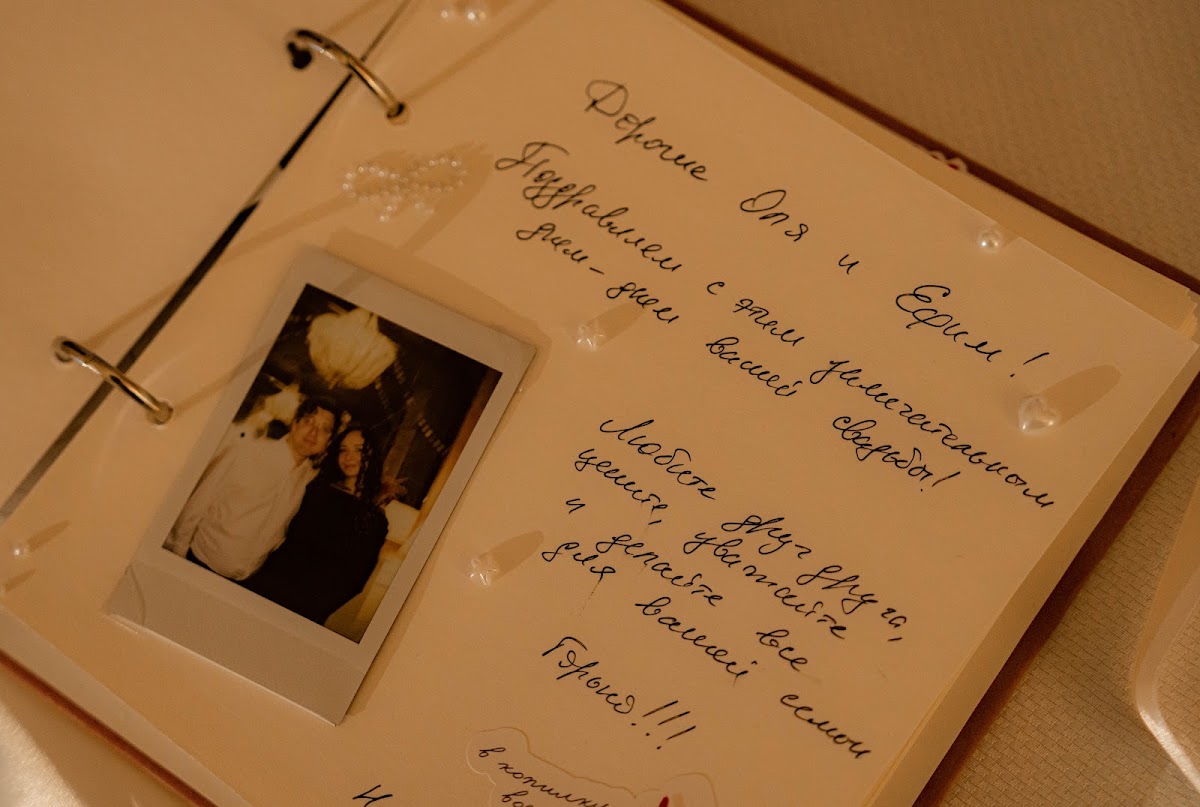 Дорогие Оля и Ефим!
Поздравляем с этим замечательным
днем - днем вашей свадьбы!
Любите друг друга,
цените, уважайте
и делайте все
для вашей семьи
Горько!!!
в копилку